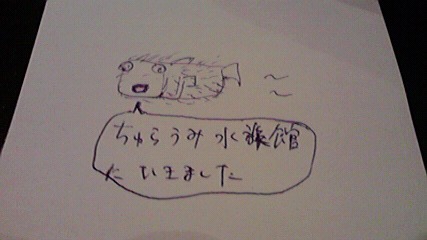 ちゅらうみ水族館
にいました